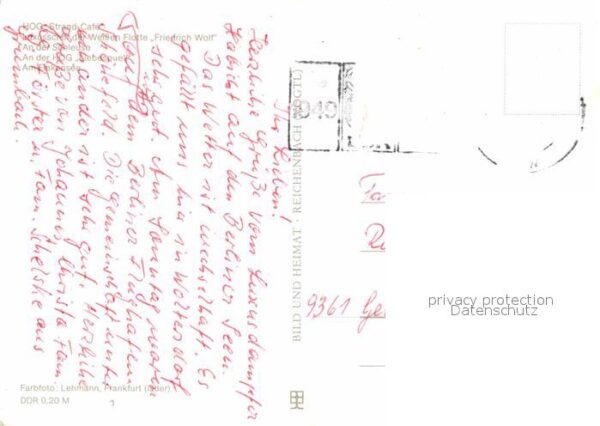 HOG „Strand-Café"
Luxusschiff der Weißen Flotte „Friedrich Wolf"
An der Schleuse
An der HOG „Liebesquelle"
Am Flakensee
Ihr Lieben!
Herzliche Grüße vom Luxusdampfer
Habicht auf den Berliner Seen.
Das Wetter ist wechselhaft. Es
gefällt uns hier in Woltersdorf
sehr gut. Am Sonntag waren
wir auf dem Berliner Flughafen
Schönefeld. Die Gemeinschaft unter
einander ist sehr gut. Herzliche
Grüße von Johannes, Christa, Fam.
Förster u. Fam.
aus
Grünbach.
Farbfoto: Lehmann, Frankfurt (Oder)
DDR 0,20 M
BILD UND HEIMAT · REICHENBACH (VOGTL)
9361 Ge
privacy protection
Datenschutz